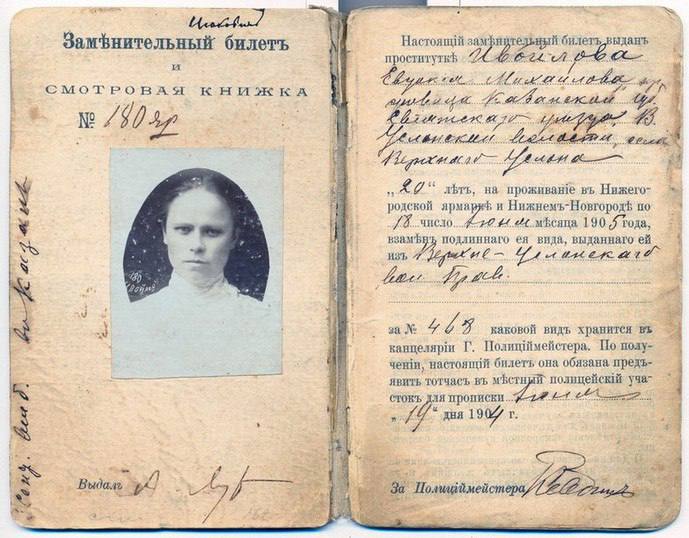 Замѣнительный билетъ
и
СМОТРОВАЯ КНИЖКА
№ 180 яр
180
Выдалъ
Настоящій замѣнительный билетъ выданъ
проституткѣ Ивойлова
Евдокія Михайлова кр
Казанской губ.
Свіяжскаго уѣзда, В.
Услонской волости, села
Верхняго Услона
„20“ лѣтъ, на проживаніе въ Нижего-
родской ярмаркѣ и Нижнемъ-Новгородѣ по
18 число Іюня мѣсяца 1905 года,
взамѣнъ подлиннаго ея вида, выданнаго ей
изъ Верхне-Услонскаго
вол Прав.
за № 468 каковой видъ хранится въ
канцеляріи Г. Полиціймейстера. По полу-
ченіи, настоящій билетъ она обязана предъ-
явить тотчасъ въ мѣстный полицейскій уча-
стокъ для прописки Іюня
„19“ дня 1904 г.
За Полиціймейстера